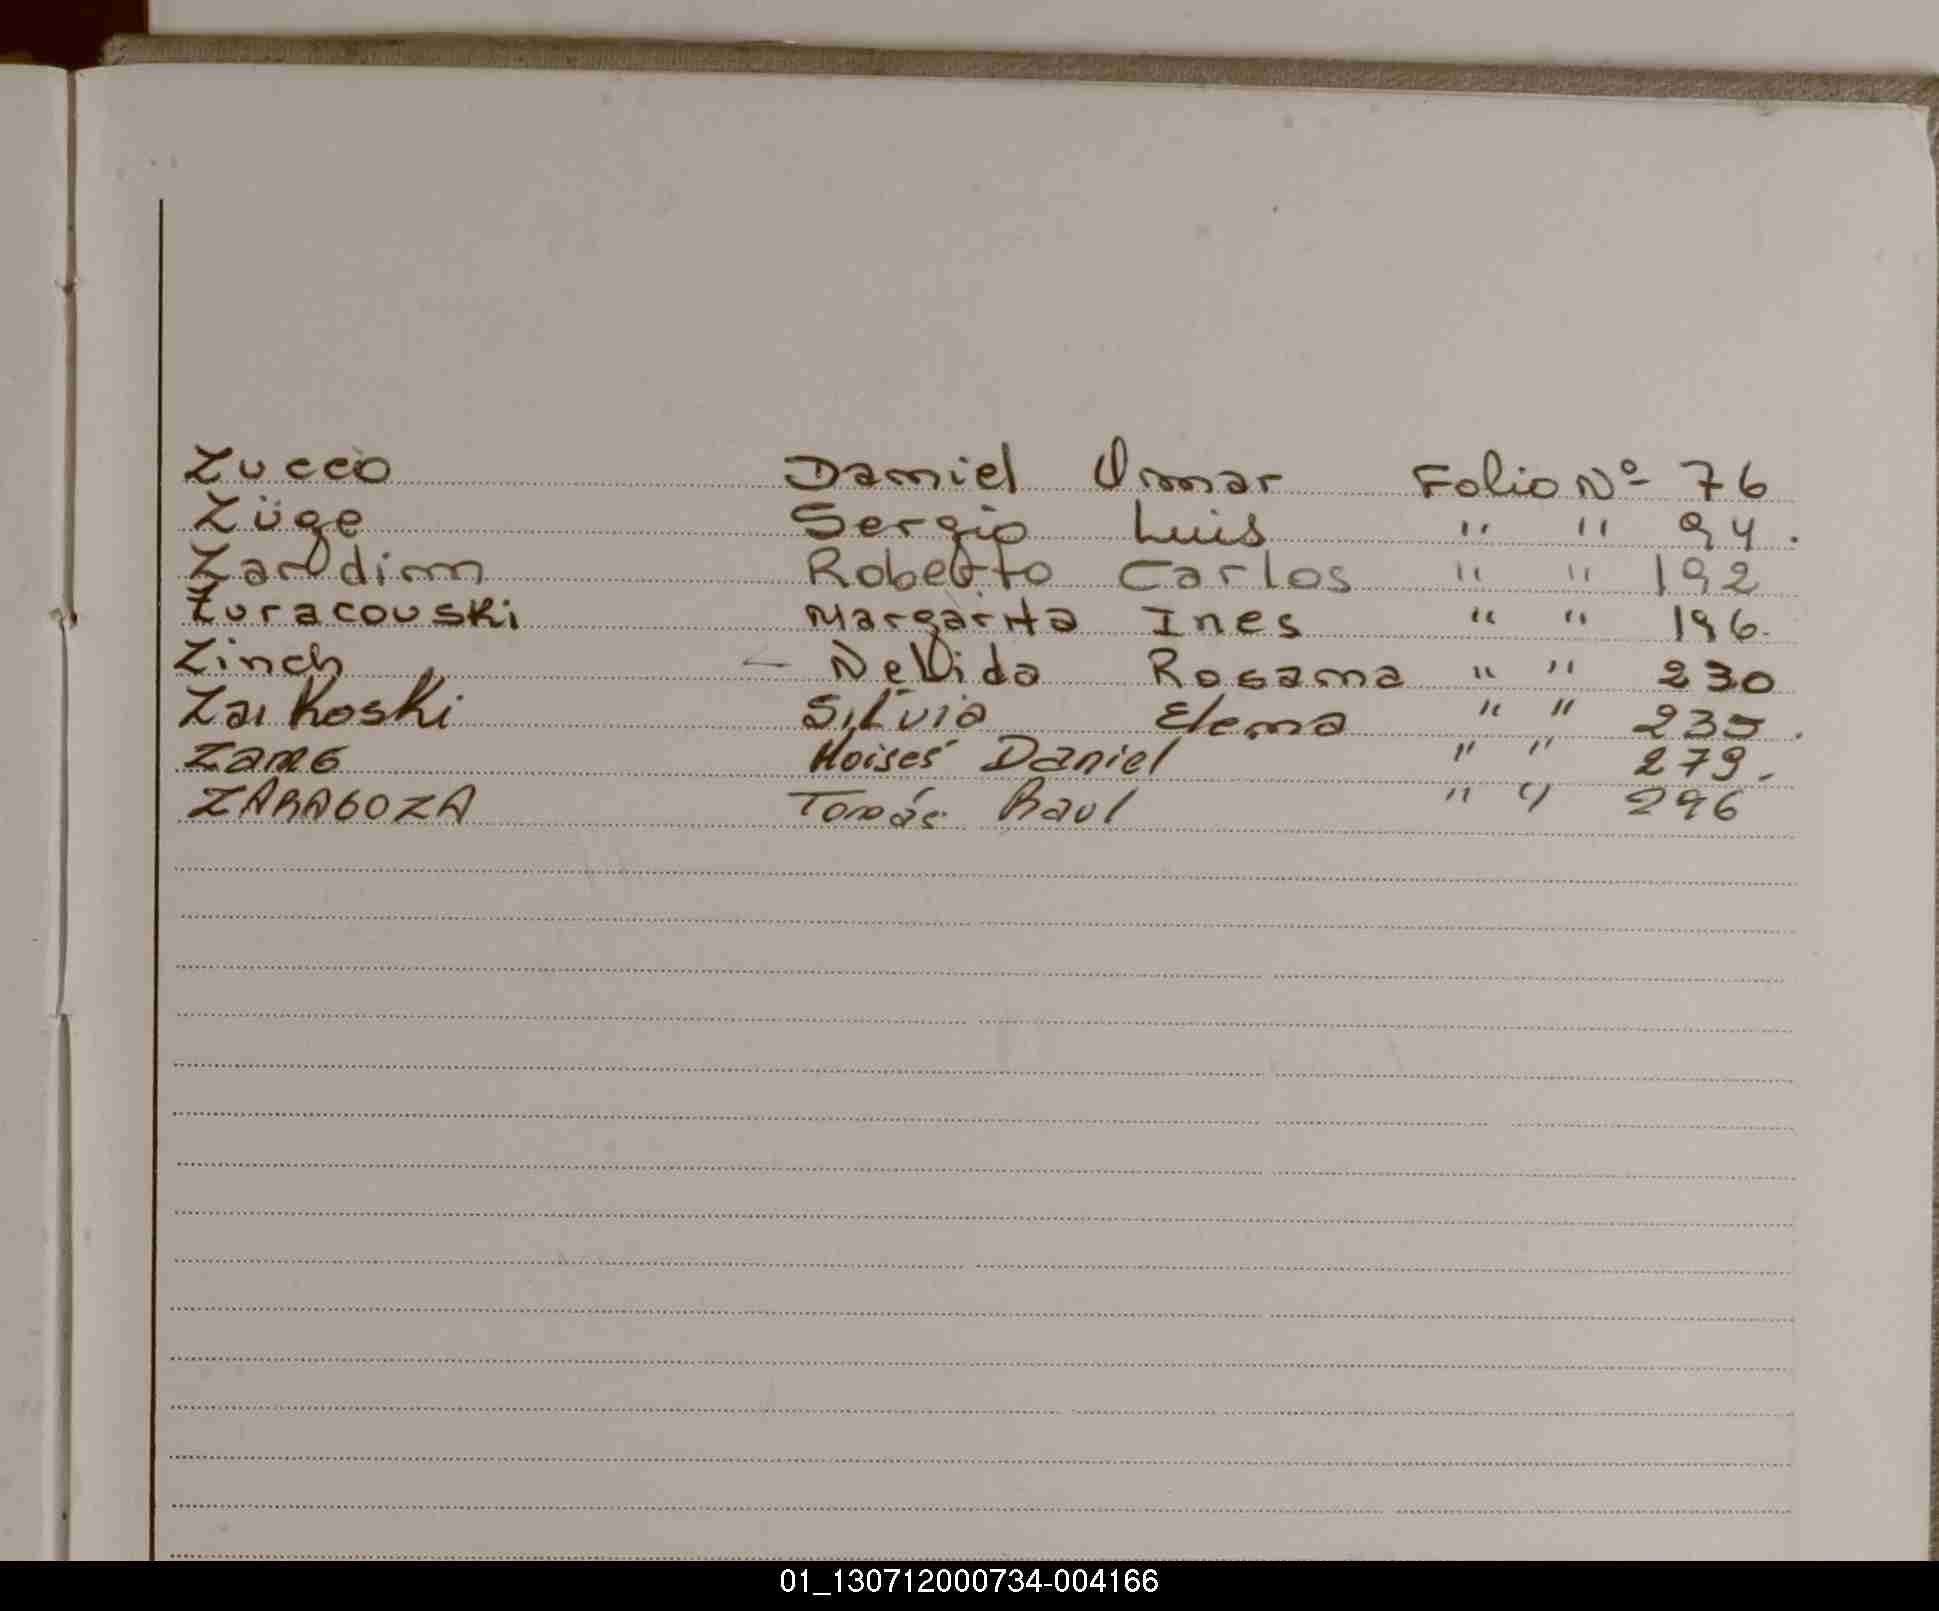 Zucco Daniel Omar Folio Nº 76
Züge Sergio Luis " " 94.
Zardim Roberto Carlos " " 192
Zuracouski Margarita Ines " " 196.
Zinch - Nelida Rosana " " 230
Zaikoski Silvia Elena " " 235.
Moises Daniel " " 279.
ZARAGOZA Tomás Raul " " 296
01_130712000734-004166